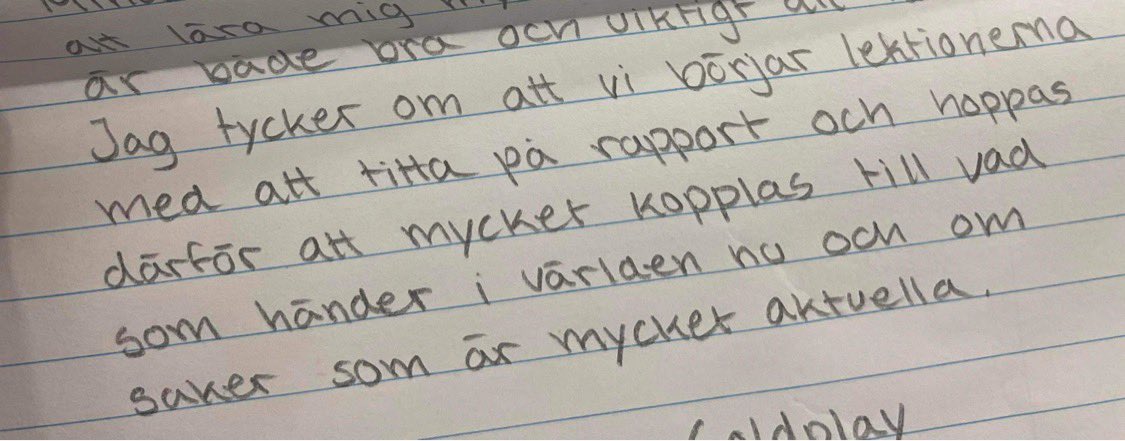 att lära mig
är både bra och viktigt att
Jag tycker om att vi börjar lektionerna
med att titta på rapport och hoppas
därför att mycket kopplas till vad
som händer i världen nu och om
saker som är mycket aktuella.
Coldplay